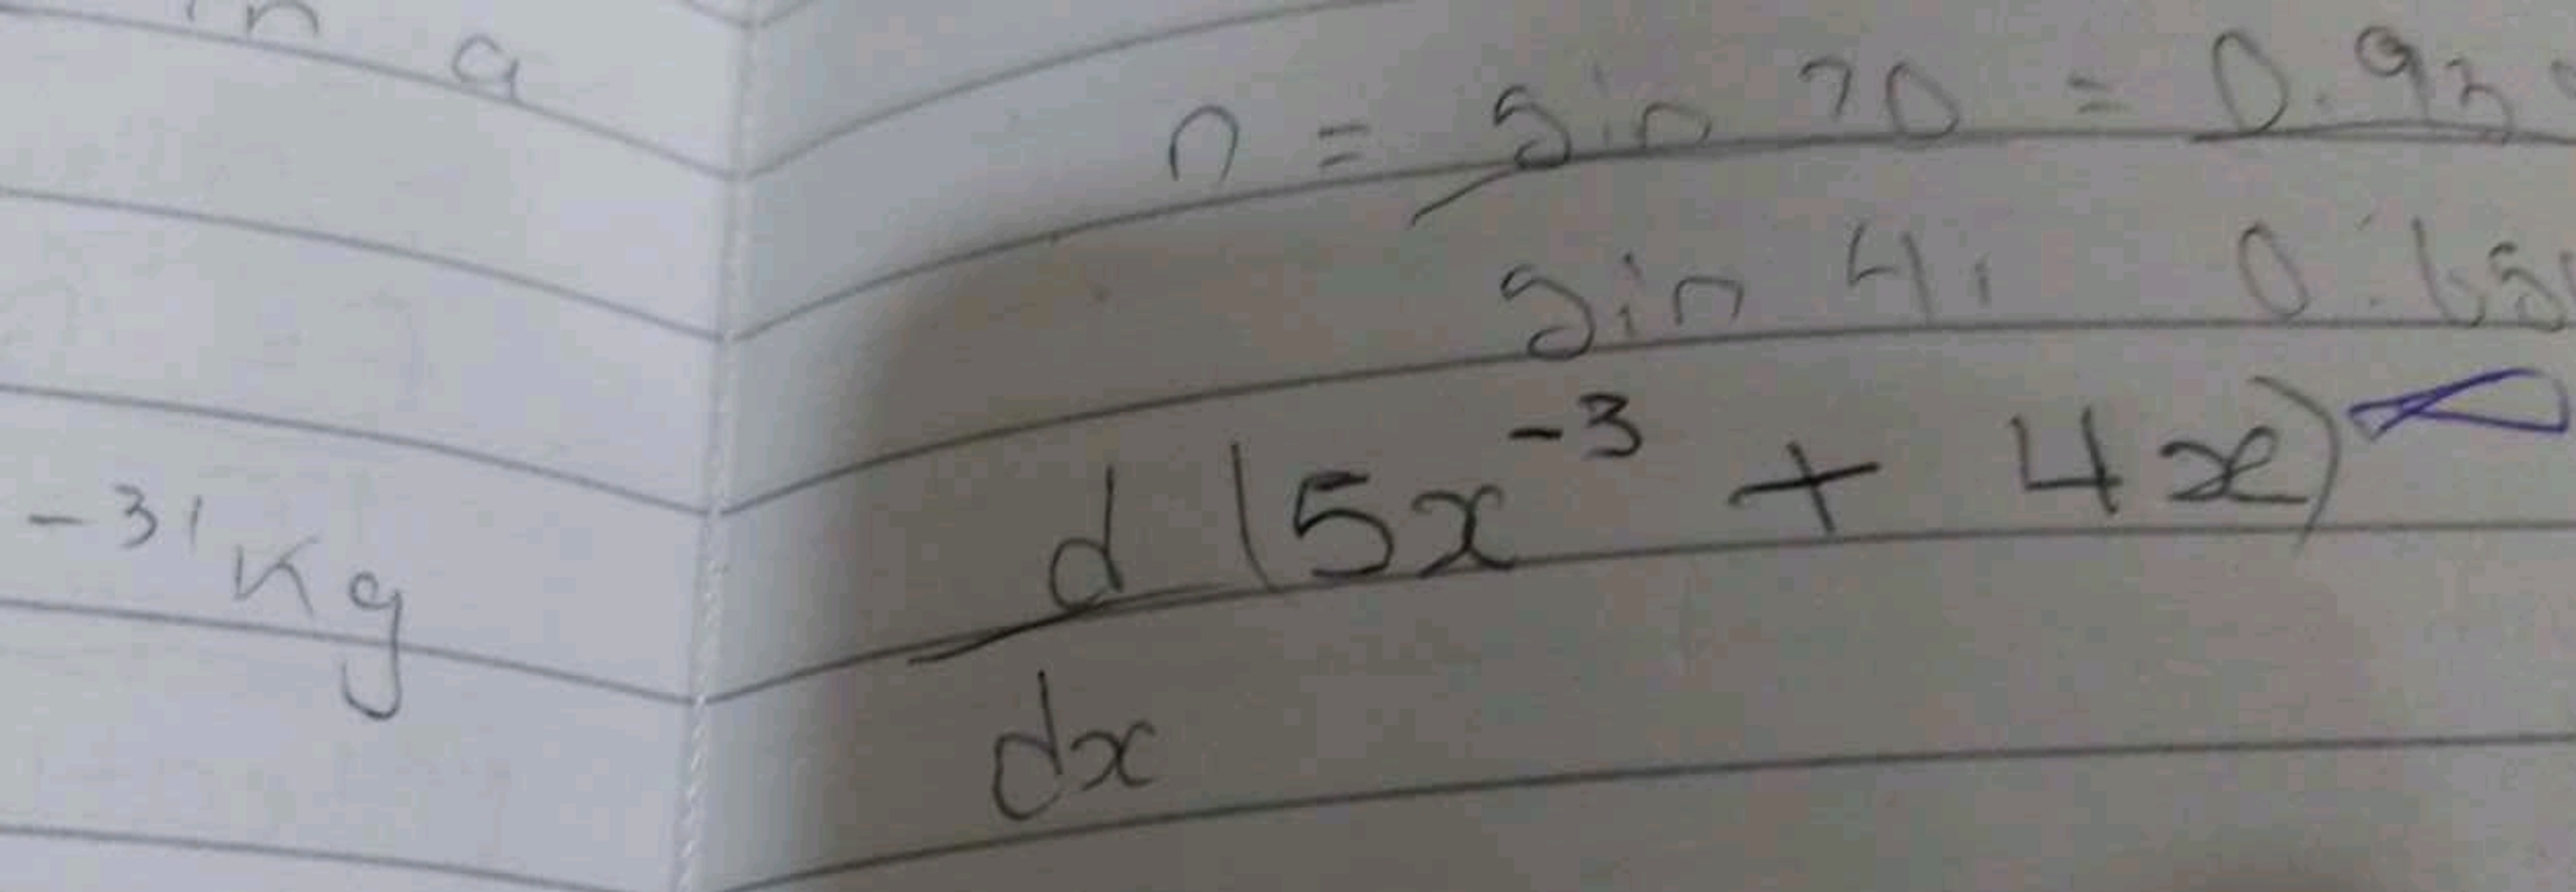 n = sin 70 = 0.93
sin 41 0.65
d (5x⁻³ + 4x)
dx
⁻³¹ kg